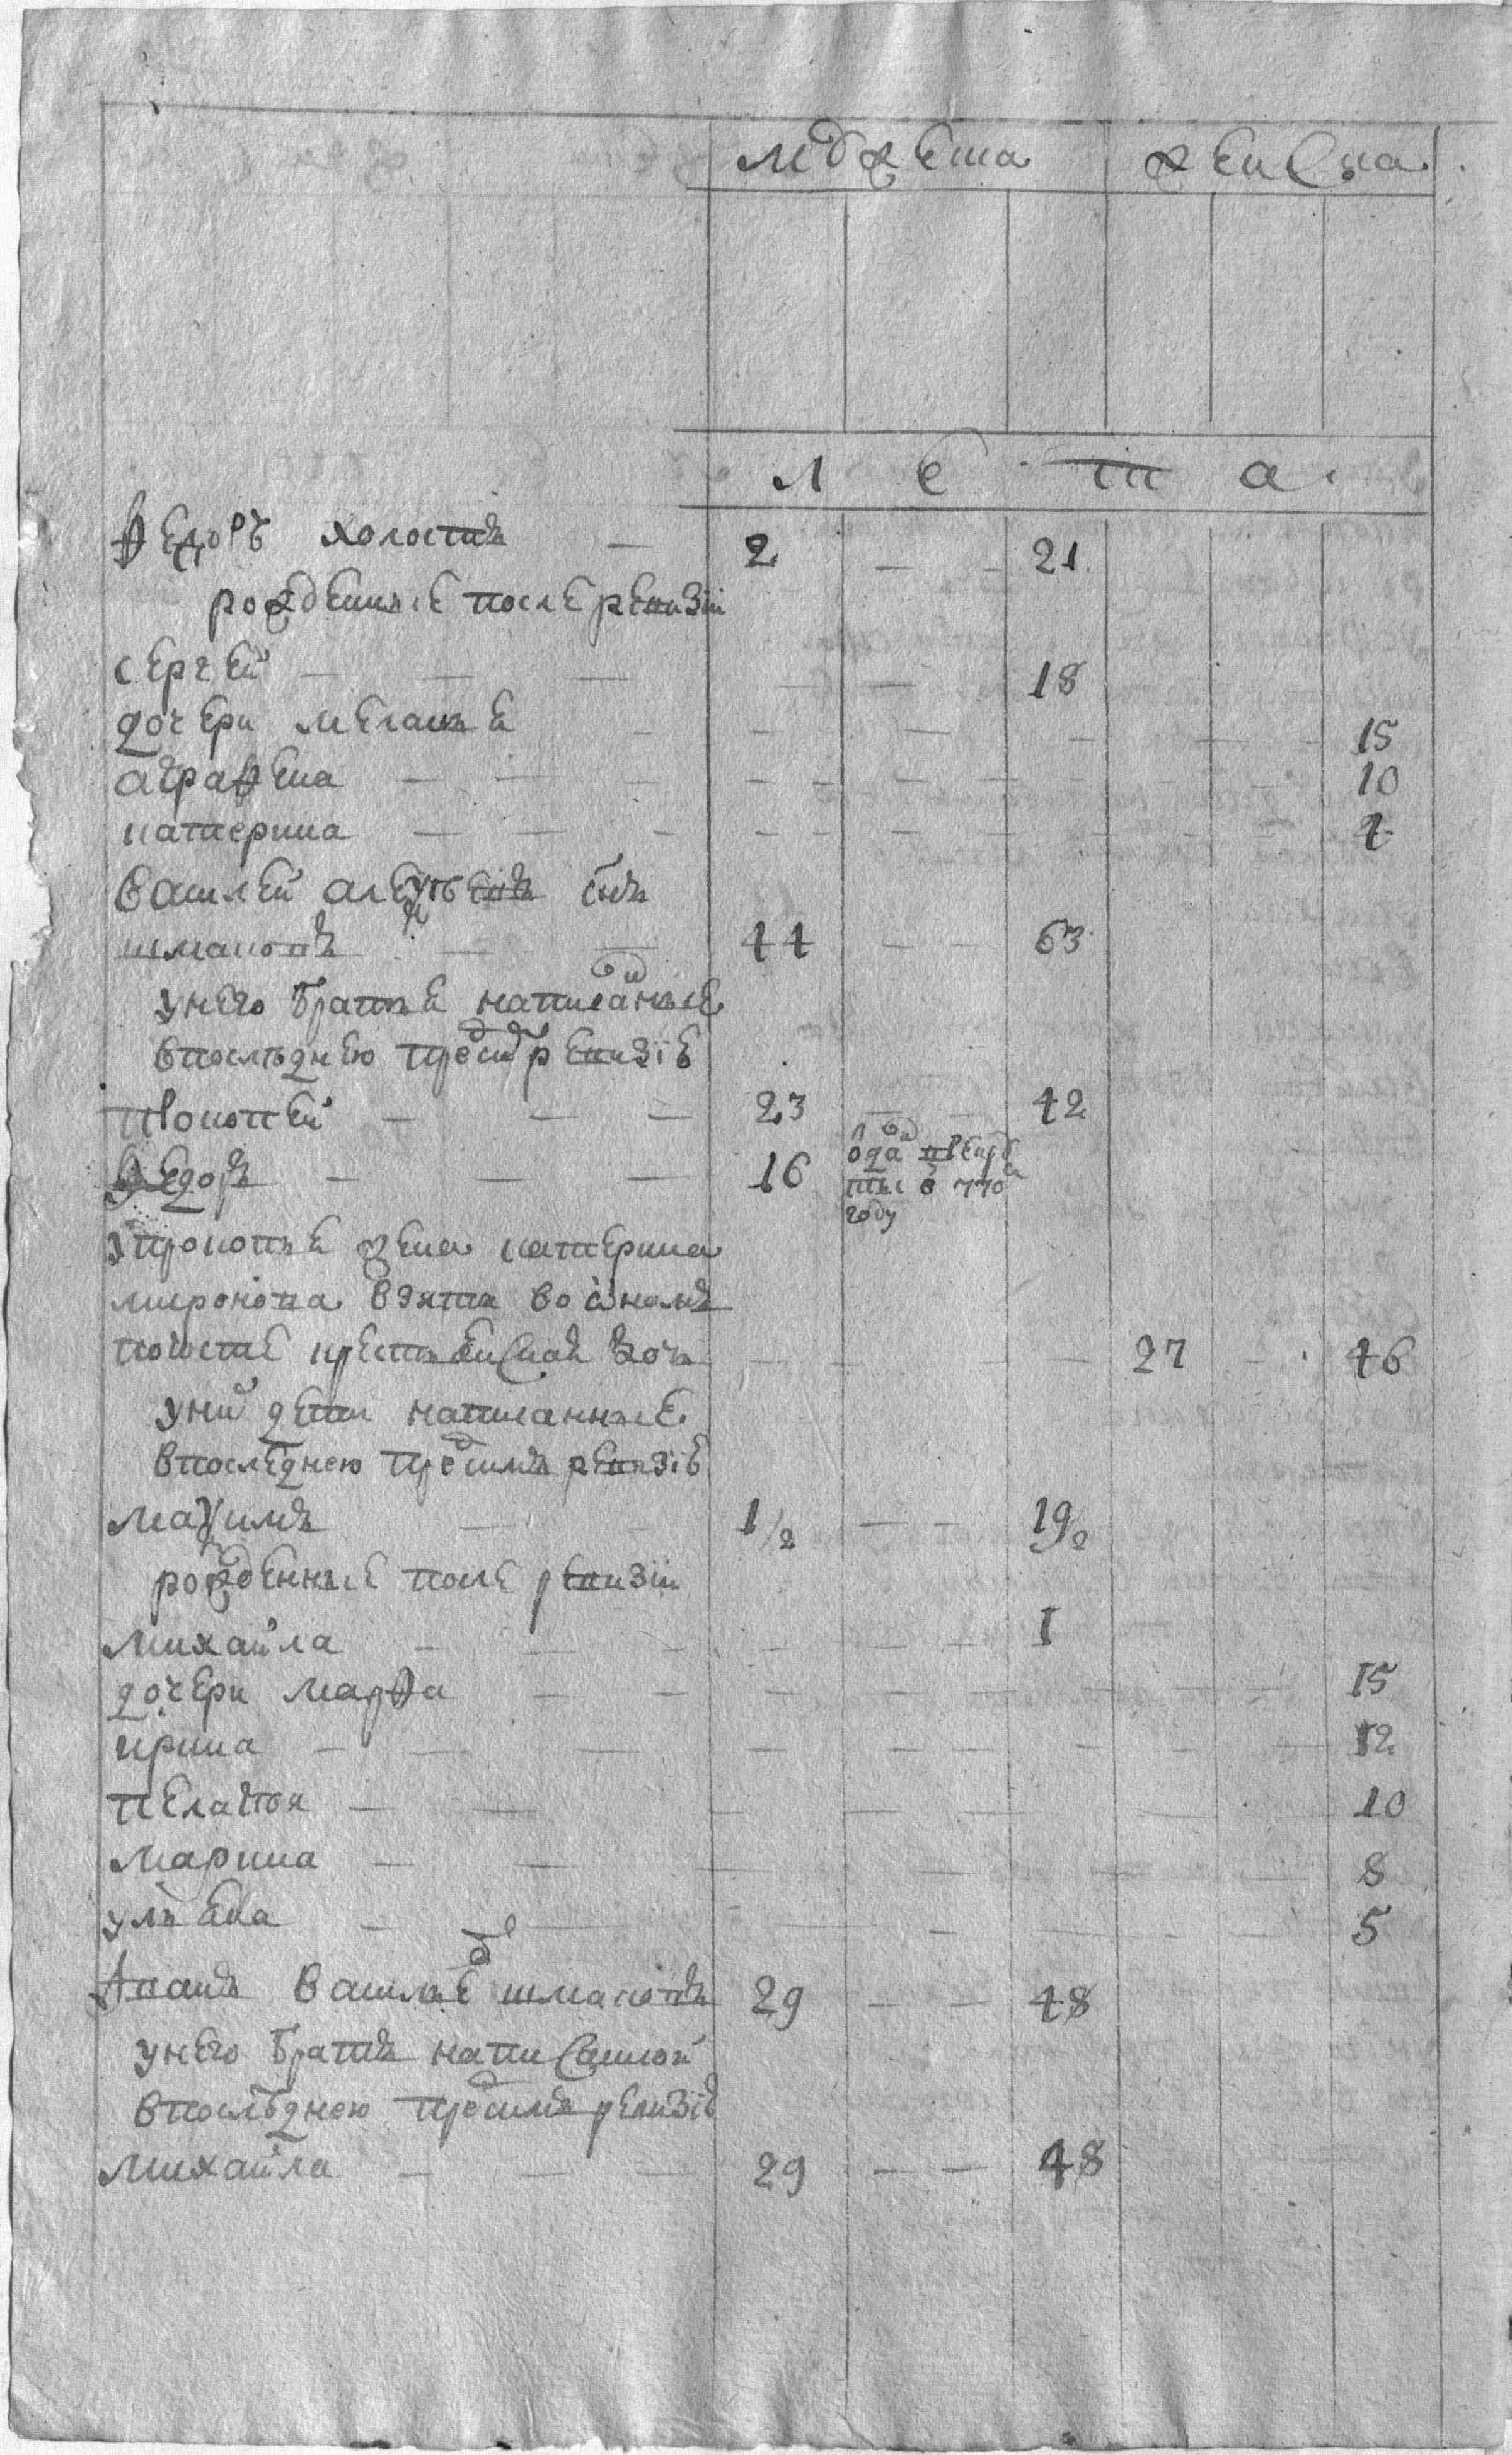 мужеска женска
л е т а
Федоръ холостъ — 2 — — 21
рожденные после ревизiи
сергей — — — — — 18
дочери меланьѣ — — — — — — 15
аграфена — — — — — — 10
катерина — — — — — — 7
василей алексеевъ снъ
шмаковъ — — 44 — — 63
у него братье написанные
в последнею пред симъ ревизiе
прокопей — — — 23 — — 42
Федоръ — — — 16 одан в рекру
ты в 770 м
году
у прокопье жена катерина
миронова взята во оном
погосте крестьянская дочь — — — 27 — 46
у ни дети написанные
в последнею пред симъ ревизiе
маѯимъ — 1/2 — — 19/2
рожденные после ревизiи
михайла — — — — — 1
дочери марфа — — — — — — 15
ирина — — — — — — 12
пелагея — — — — — 10
марина — — — — — 8
ульяна — — — — — 5
Иванъ васильев шмаковъ 29 — — 48
у него братъ написанной
в последнею пред симъ ревизiе
михайла — — — 29 — — 48